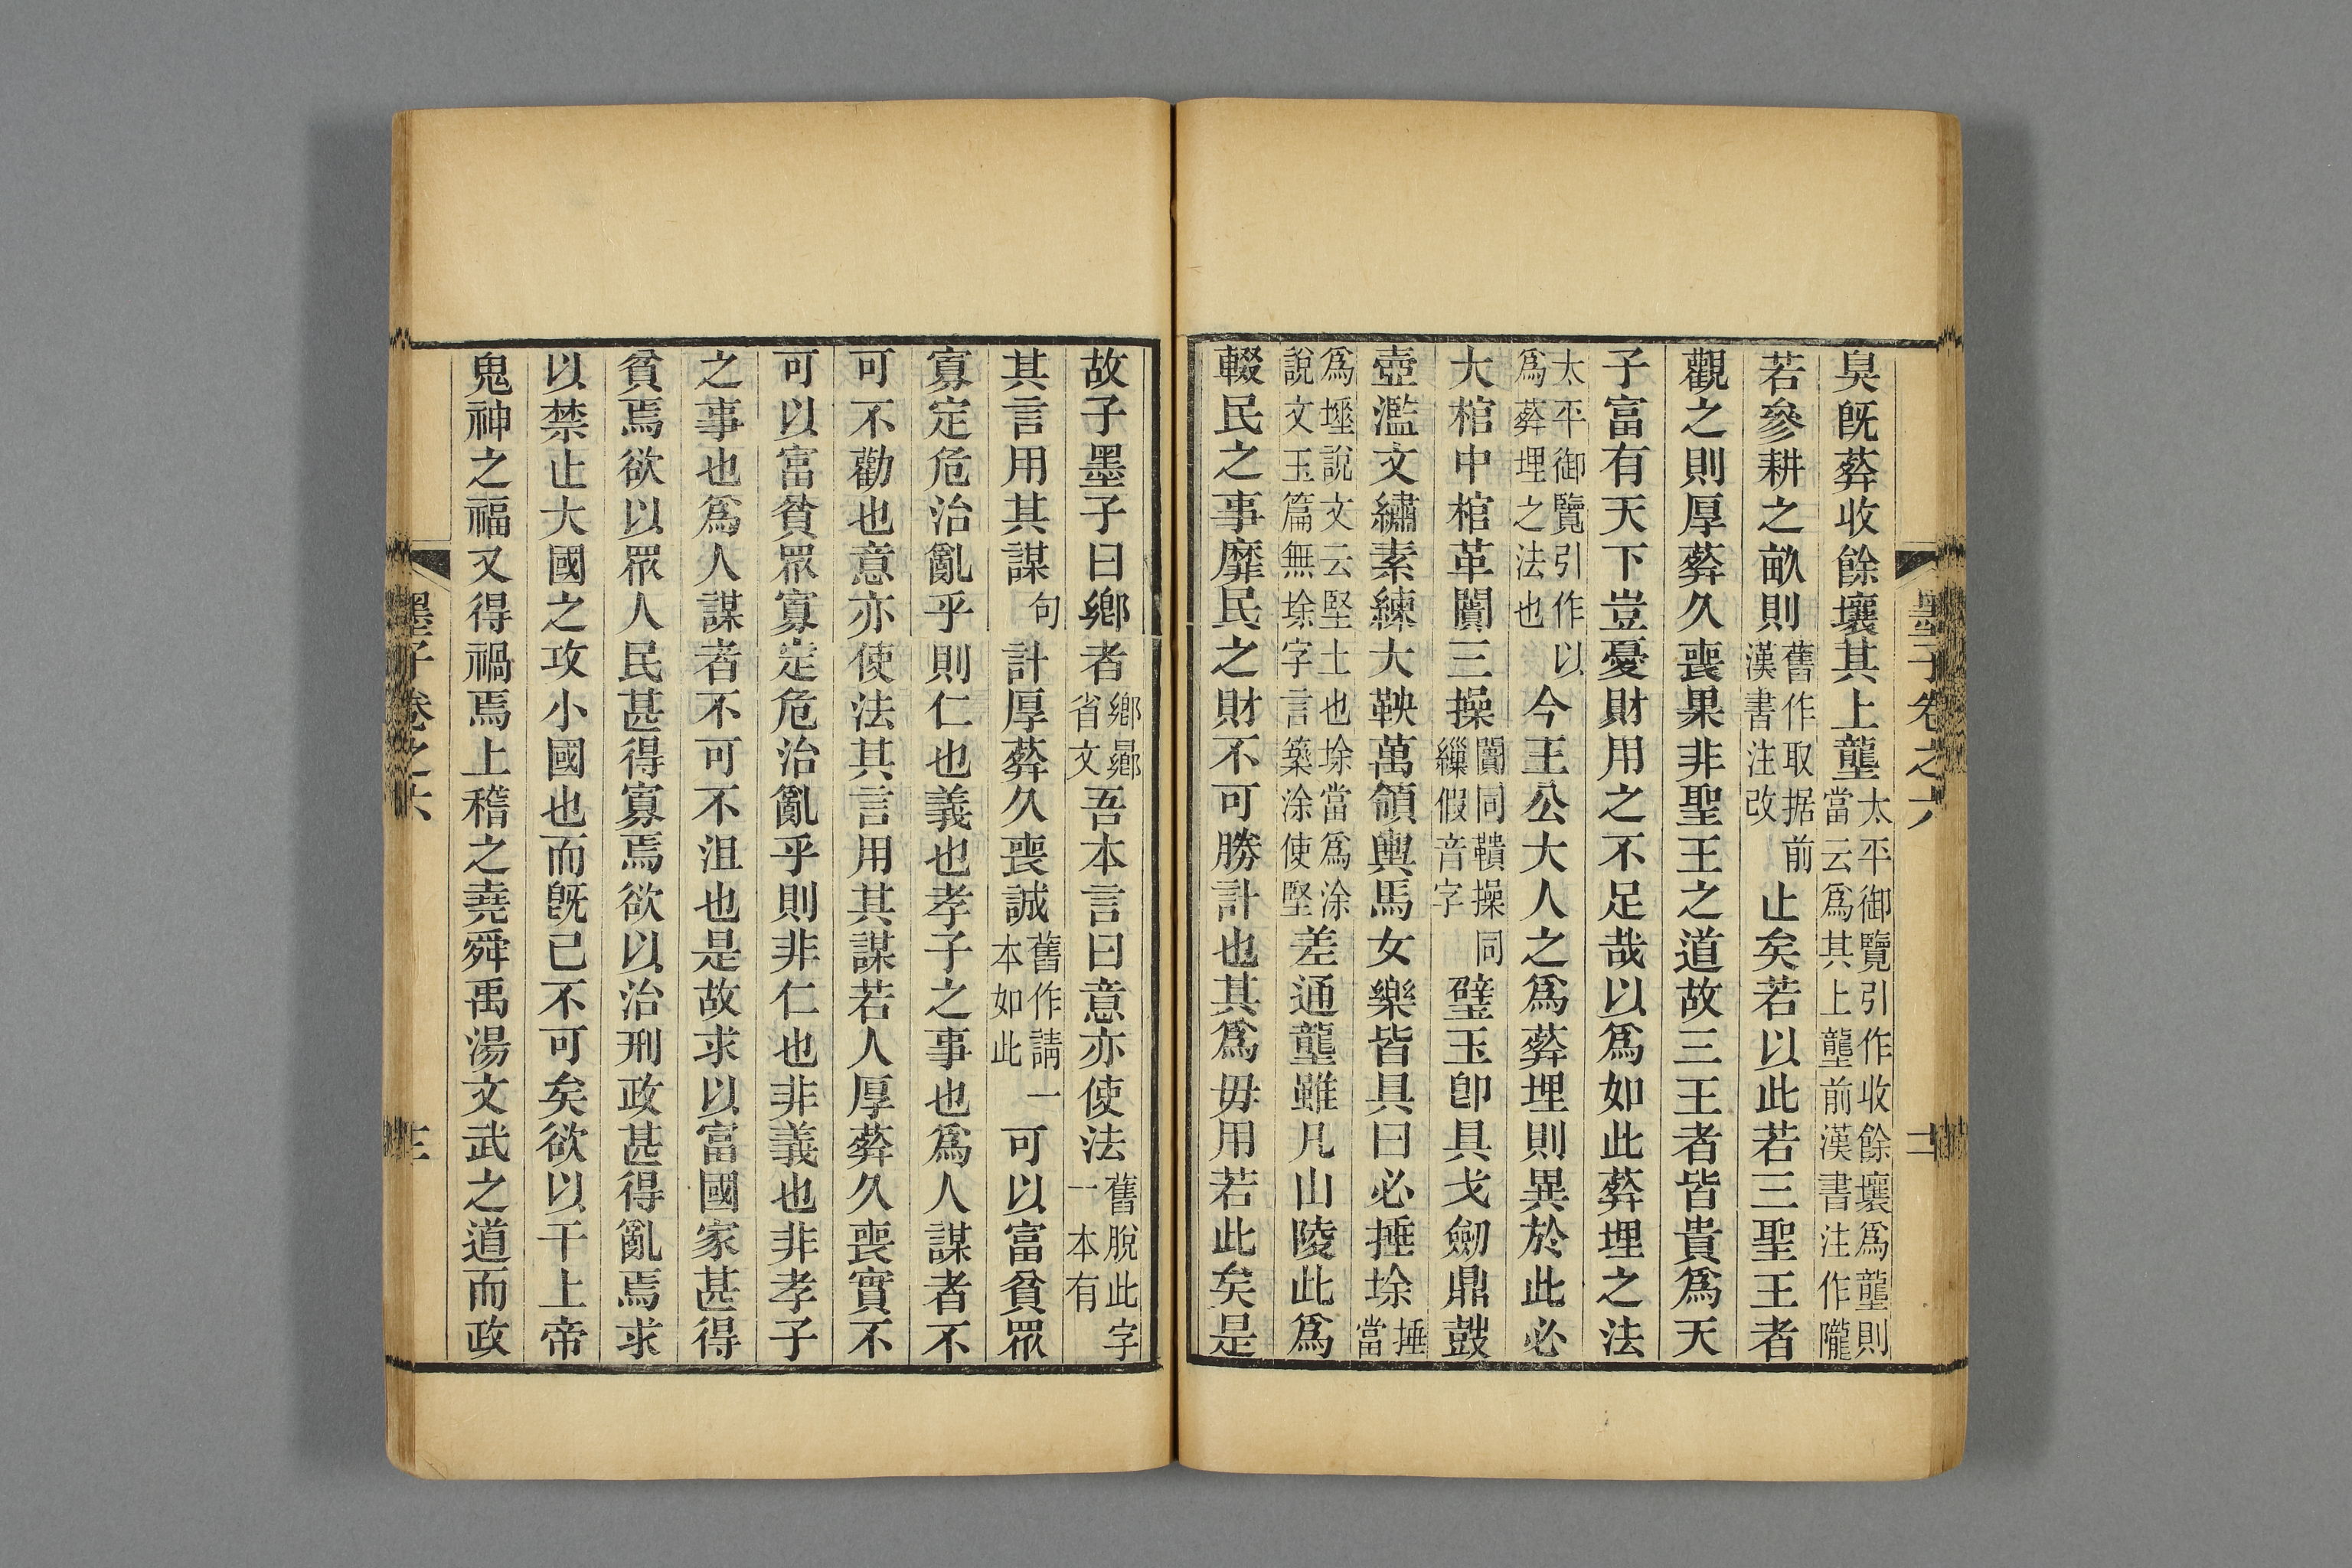 墨子卷之六
十二
臭旣葬收餘壤其上壟太平御覽引作收餘壤爲壟則當云爲其上壟前漢書注作隴
若參耕之畝則舊作取据前漢書注改止矣若以此若三聖王者
觀之則厚葬久喪果非聖王之道故三王者皆貴爲天
子富有天下豈憂財用之不足哉以爲如此葬埋之法
太平御覽引作以爲葬埋之法也今王公大人之爲葬埋則異於此必
大棺中棺革闠三操闠同鞼操同繅假音字璧玉卽具戈劒鼎鼓
壺濫文繡素練大鞅萬領輿馬女樂皆具曰必捶垛捶當
爲埵說文云堅土也垛當爲涂說文玉篇無垛字言築涂使堅差通壟雖凡山陵此爲
輟民之事靡民之財不可勝計也其爲毋用若此矣是
故子墨子曰鄉者鄉曏省文吾本言曰意亦使法舊脫此字一本有
其言用其謀句計厚葬久喪誠舊作請一本如此可以富貧眾
寡定危治亂乎則仁也義也孝子之事也爲人謀者不
可不勸也意亦使法其言用其謀若人厚葬久喪實不
可以富貧眾寡定危治亂乎則非仁也非義也非孝子
之事也爲人謀者不可不沮也是故求以富國家甚得
貧焉欲以眾人民甚得寡焉欲以治刑政甚得亂焉求
以禁止大國之攻小國也而旣已不可矣欲以干上帝
鬼神之福又得禍焉上稽之堯舜禹湯文武之道而政
墨子卷之六